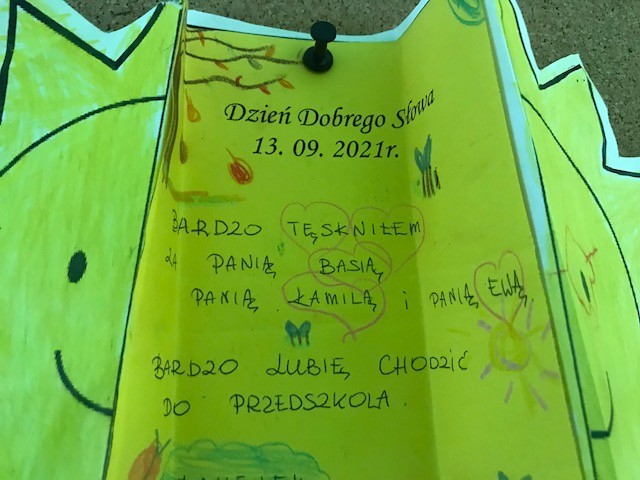 Dzień Dobrego Słowa
13. 09. 2021r.
BARDZO TĘSKNIŁEM
ZA PANIĄ BASIĄ,
PANIĄ KAMILĄ i PANIĄ EWĄ,
BARDZO LUBIĘ CHODZIĆ
DO PRZEDSZKOLA.